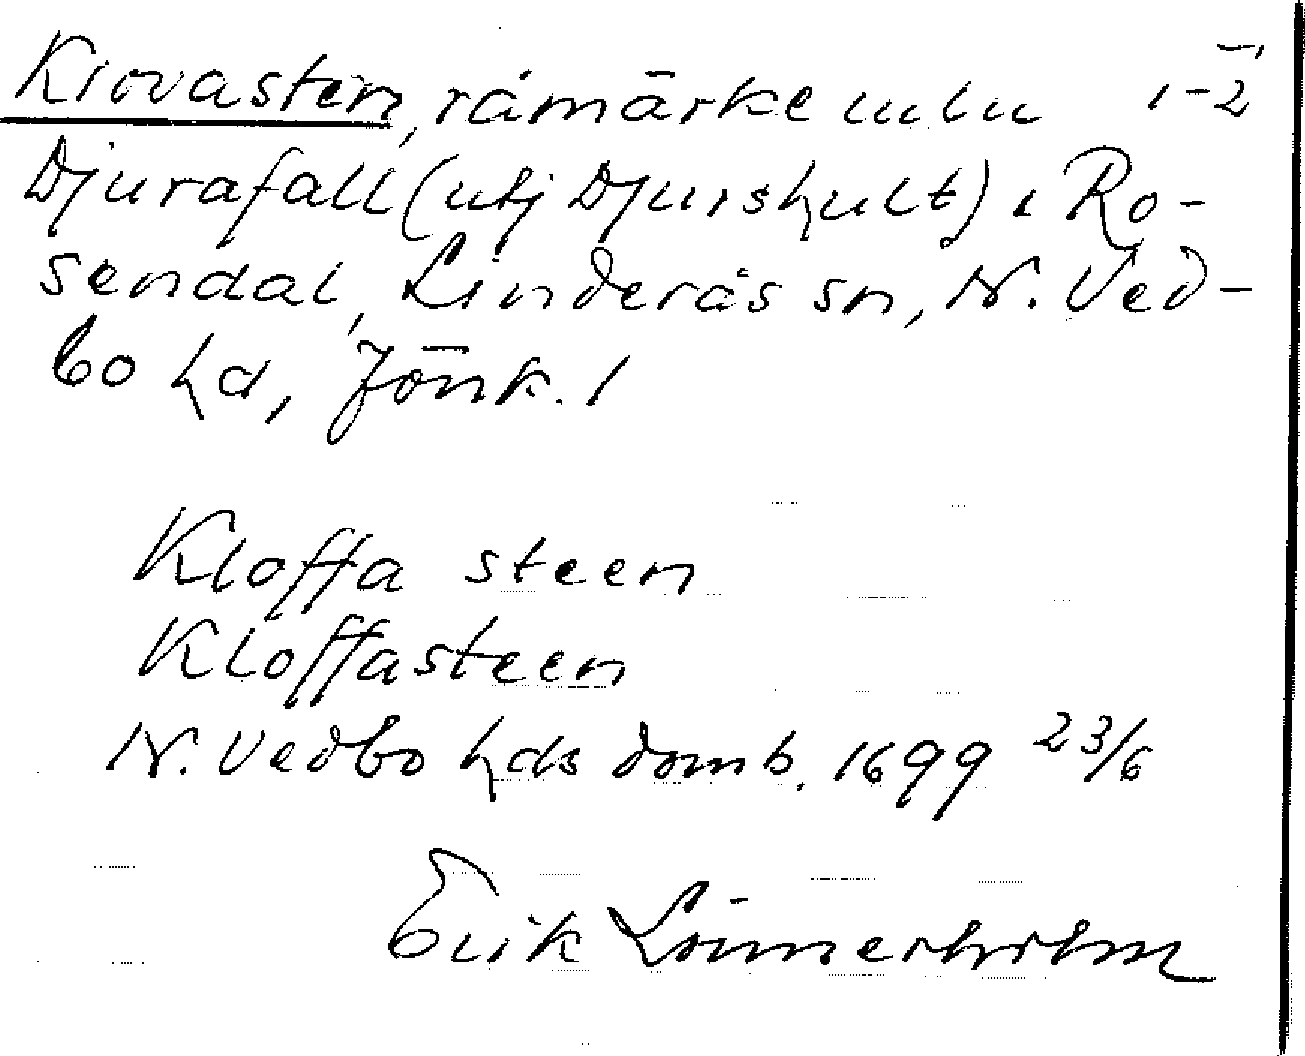 Klovasten, råmärke mln 1-2
Djurafall (utj Djurshult) i Ro-
sendal, Linderås sn, N. Ved-
bo hd, Jönk. l
Kloffa steen
Kloffasteen
N. Vedbo hds domb. 1699 23/6
Erik Lönnerholm